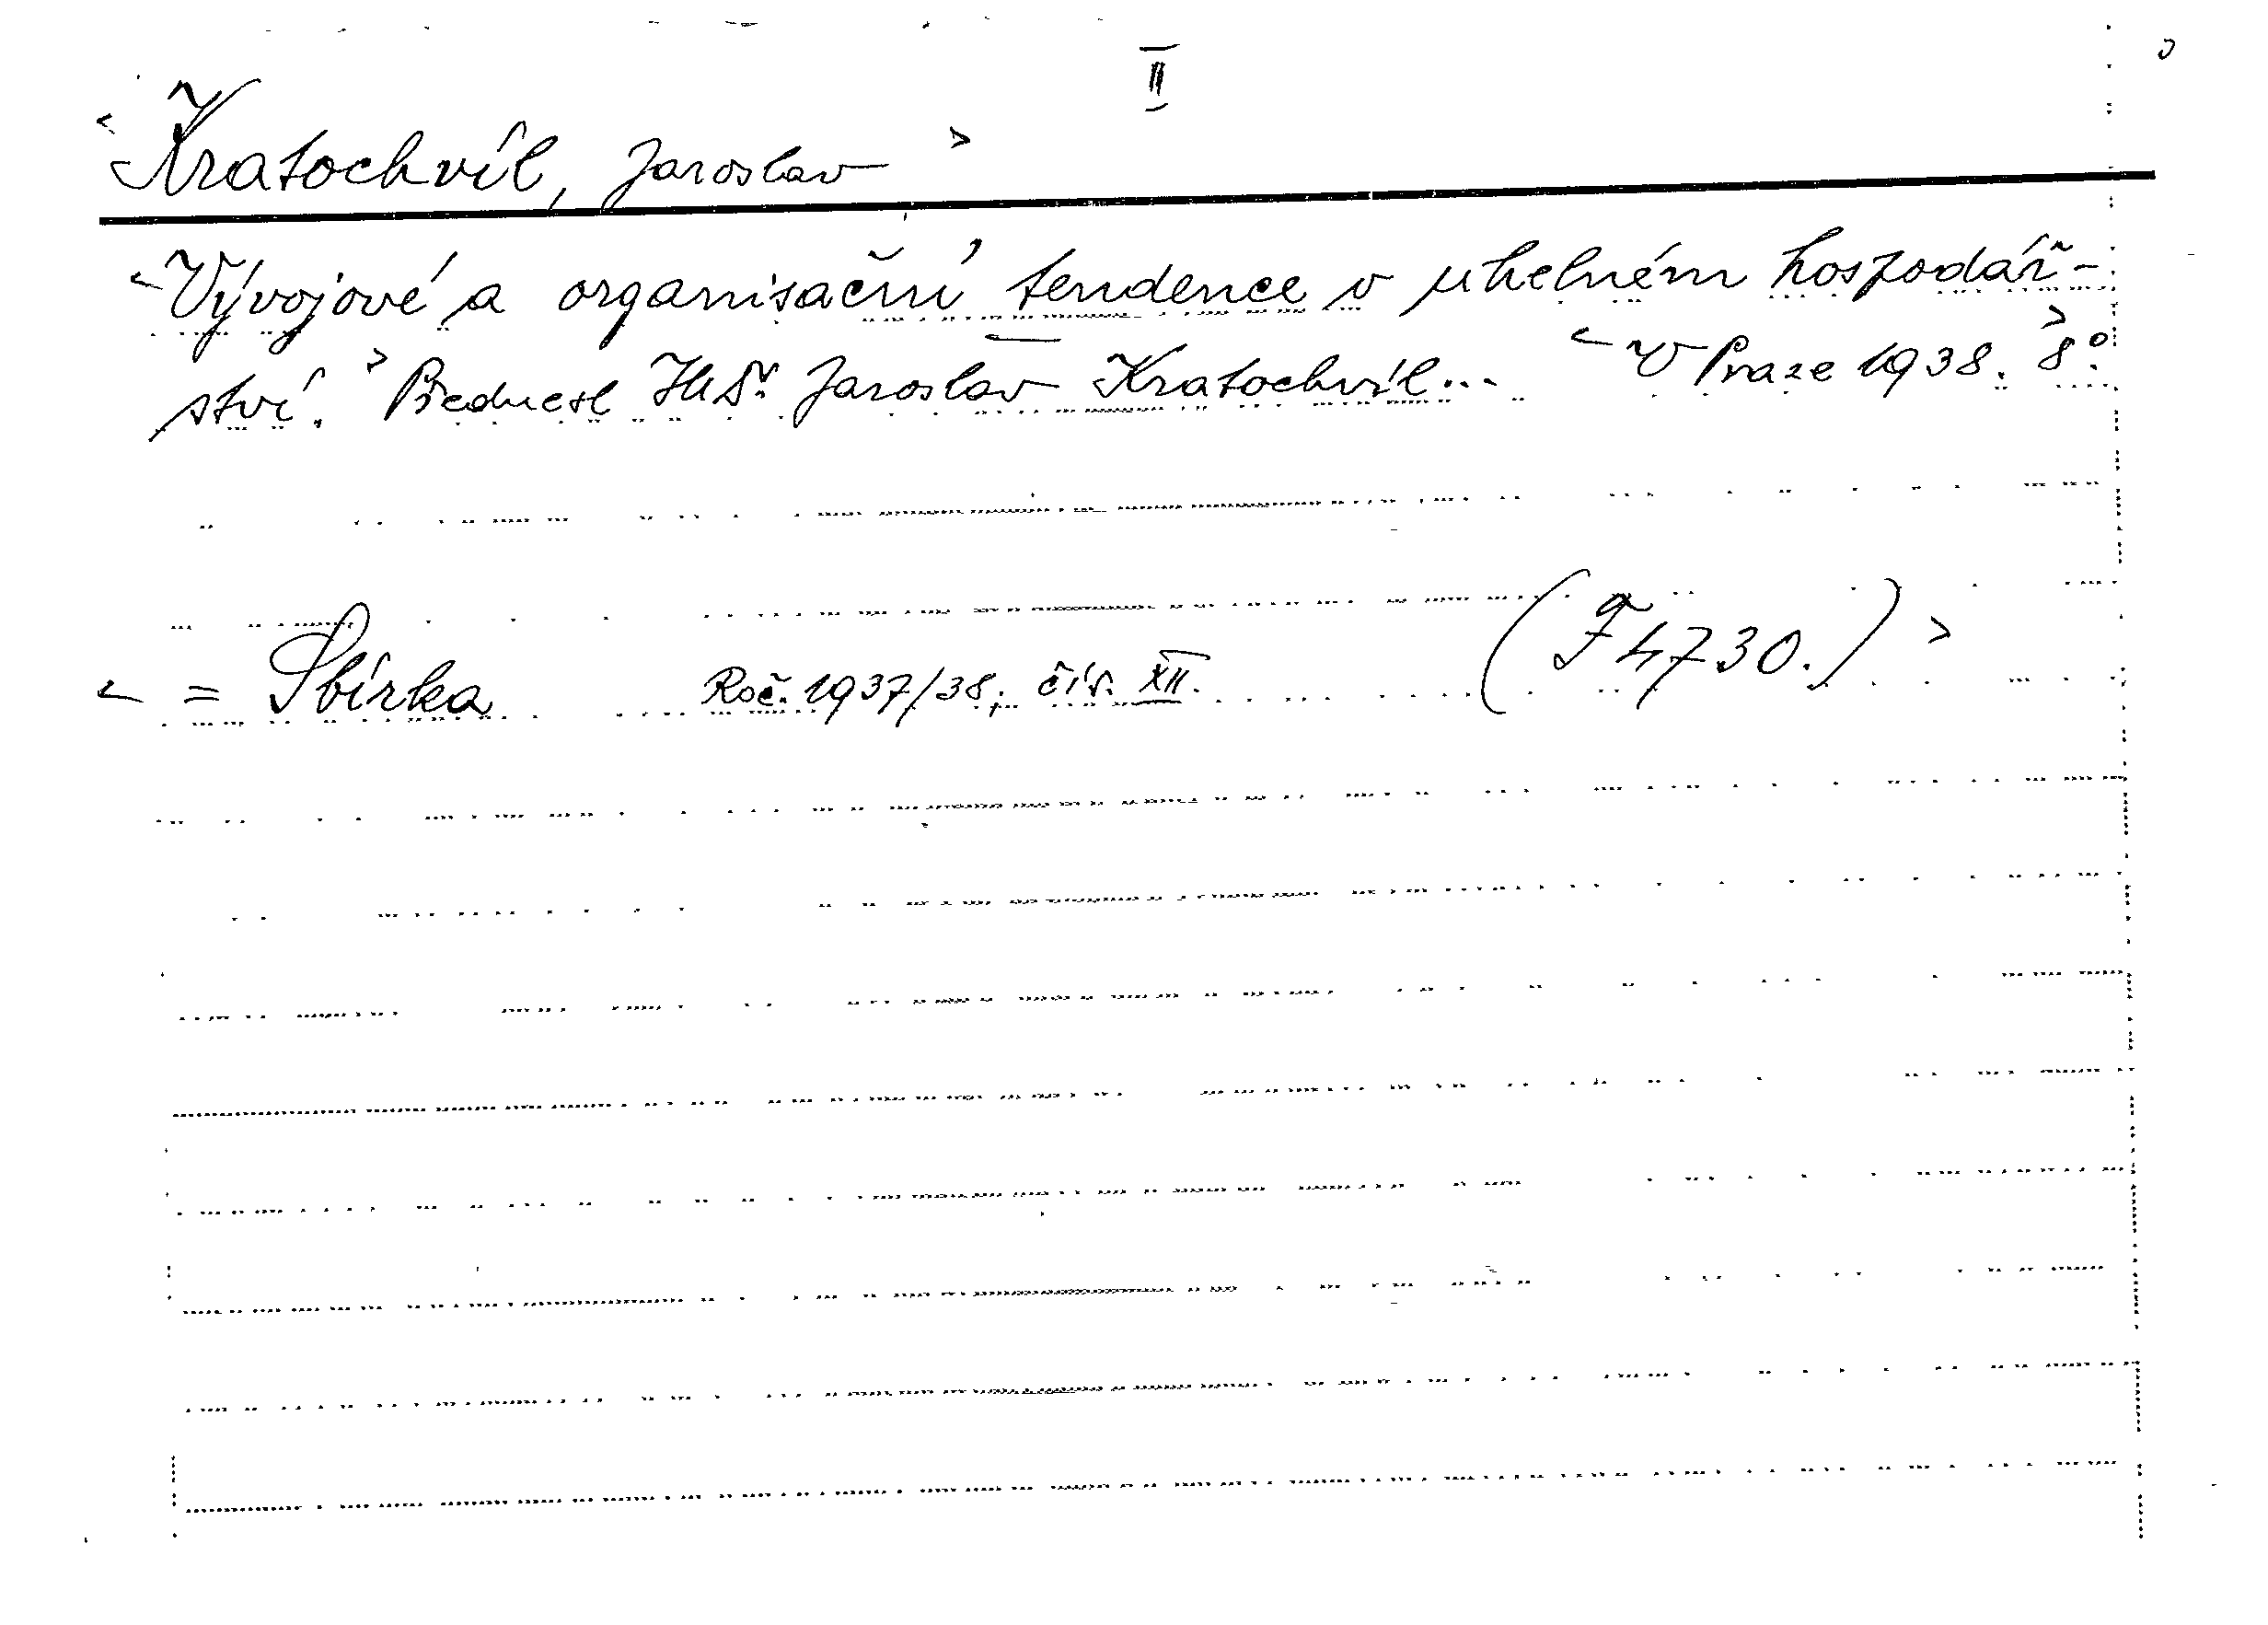 II
<Kratochvíl, Jaroslav>
<Vývojové a organisační tendence v uhelném hospodář-
ství.> Přednesl JUDr. Jaroslav Kratochvíl... <V Praze 1938.> 8°.
< = Sbírka Roč. 1937/38, čís. XII. (F 4730.) >